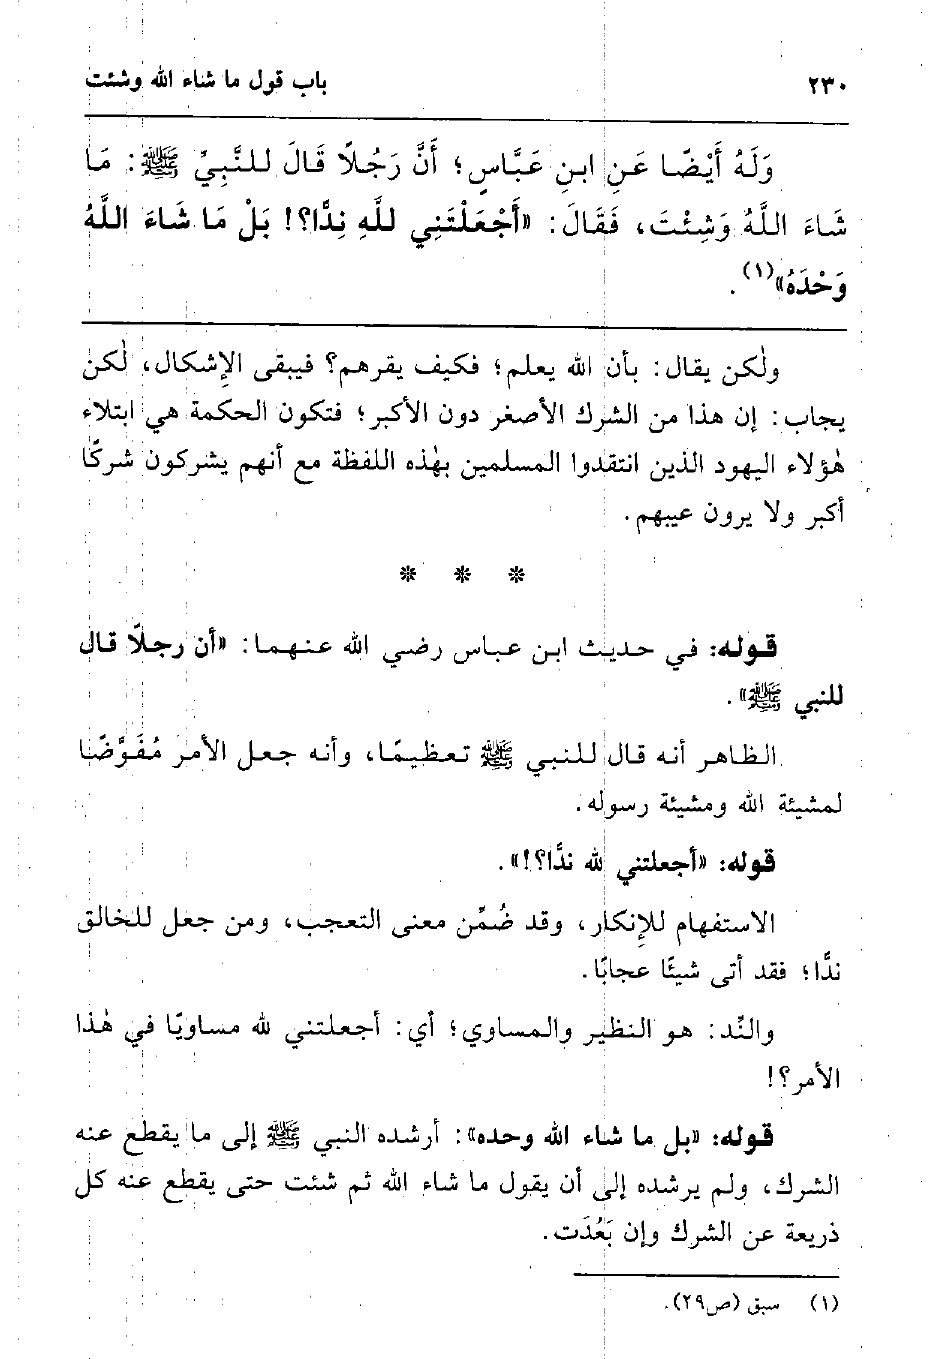 ٢٣٠ باب قول ما شاء الله وشئت
وَلَهُ أَيْضًا عَنِ ابنِ عَبَّاسٍ؛ أَنَّ رَجُلًا قَالَ لِلنَّبِيِّ ﷺ: مَا
شَاءَ اللَّهُ وَشِئْتَ، فَقَالَ: «أَجَعَلْتَنِي للَّهِ نِدًّا؟! بَلْ مَا شَاءَ اللَّهُ
وَحْدَهُ»(١).
ولٰكن يقال: بأن الله يعلم؛ فكيف يقرهم؟ فيبقى الإشكال، لٰكن
يجاب: إن هذا من الشرك الأصغر دون الأكبر؛ فتكون الحكمة هي ابتلاء
هٰؤلاء اليهود الذين انتقدوا المسلمين بهٰذه اللفظة مع أنهم يشركون شركًا
أكبر ولا يرون عيبهم.
* * *
قوله: في حديث ابن عباس رضي الله عنهما: «أن رجلًا قال
للنبي ﷺ».
الظاهر أنه قال للنبي ﷺ تعظيمًا، وأنه جعل الأمر مُفَوَّضًا
لمشيئة الله ومشيئة رسوله.
قوله: «أجعلتني لله ندًّا؟!».
الاستفهام للإنكار، وقد ضُمِّن معنى التعجب، ومن جعل للخالق
ندًّا؛ فقد أتى شيئًا عجابًا.
والنِّد: هو النظير والمساوي؛ أي: أجعلتني لله مساويًا في هٰذا
الأمر؟!
قوله: «بل ما شاء الله وحده»: أرشده النبي ﷺ إلى ما يقطع عنه
الشرك، ولم يرشده إلى أن يقول ما شاء الله ثم شئت حتى يقطع عنه كل
ذريعة عن الشرك وإن بَعُدَت.
(١) سبق (ص٢٩).